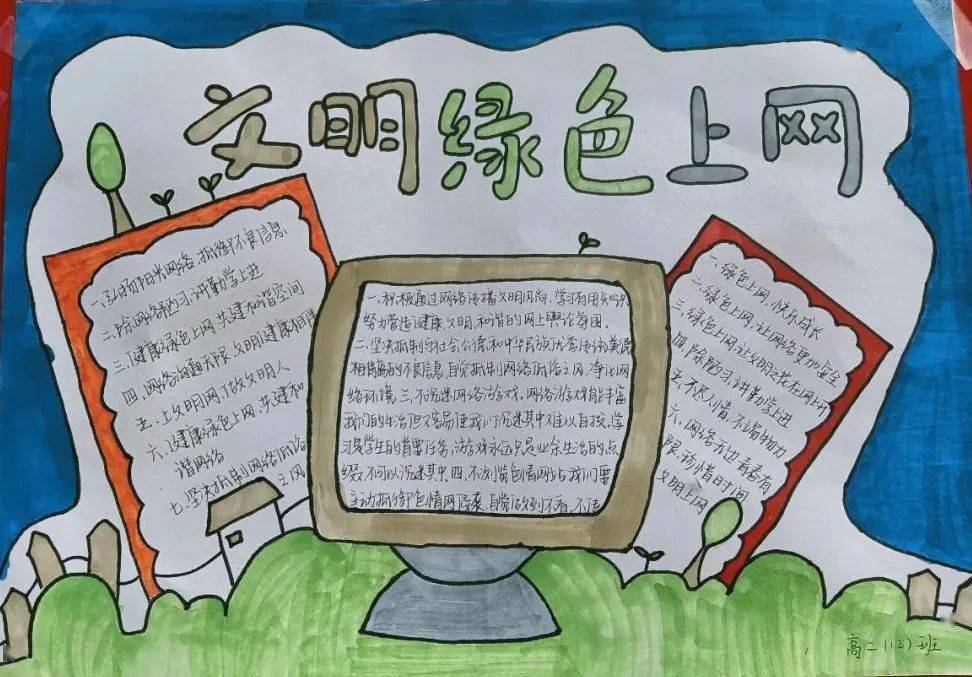 文明绿色上网
一、弘扬阳光网络，抵御不良信息
二、除网络陋习，讲勤学上进
三、健康绿色上网，共建和谐空间
四、网络沟通无限，文明健康相伴
五、上文明网，做文明人
六、健康绿色上网，共建和
谐网络
七、坚决抵制网络低俗
之风
一、积极通过网络传播文明风尚，学习有用知识
努力营造健康、文明、和谐的网上舆论氛围。
二、坚决抵制与社会公德和中华民族优秀传统美德
相背的不良信息，自觉抵制网络低俗之风，净化网
络环境。三、不沉迷网络游戏，网络游戏能丰富
我们的生活但又容易使我们沉迷其中难以自拔，学
习是学生的首要任务，游戏永远只是业余生活的点
缀，不可以沉迷其中。四、不浏览色情网站，我们要
主动抵御色情网络，自觉做到不看、不传
一、绿色上网，快乐成长
二、绿色上网，让网络更加安全
三、绿色上网，让文明之花在网上开
四、除陋习，讲勤学上进
五、不尽人情，不竭物力
六、网络无边青春有
限，珍惜时间
文明上网
高二（12）班